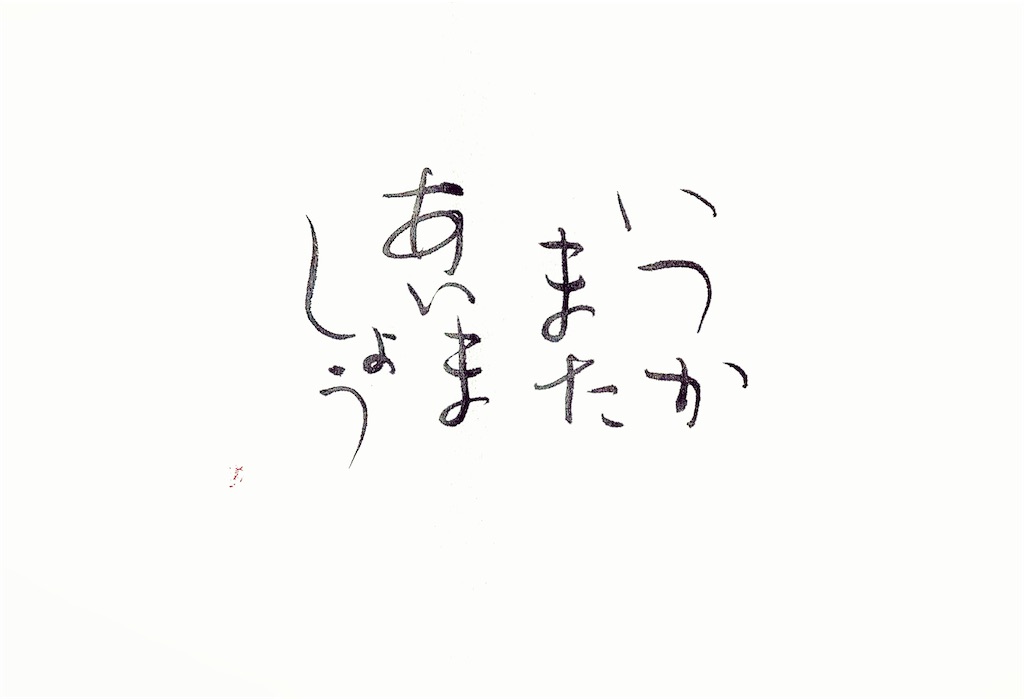 いつか
また
あいま
しょう